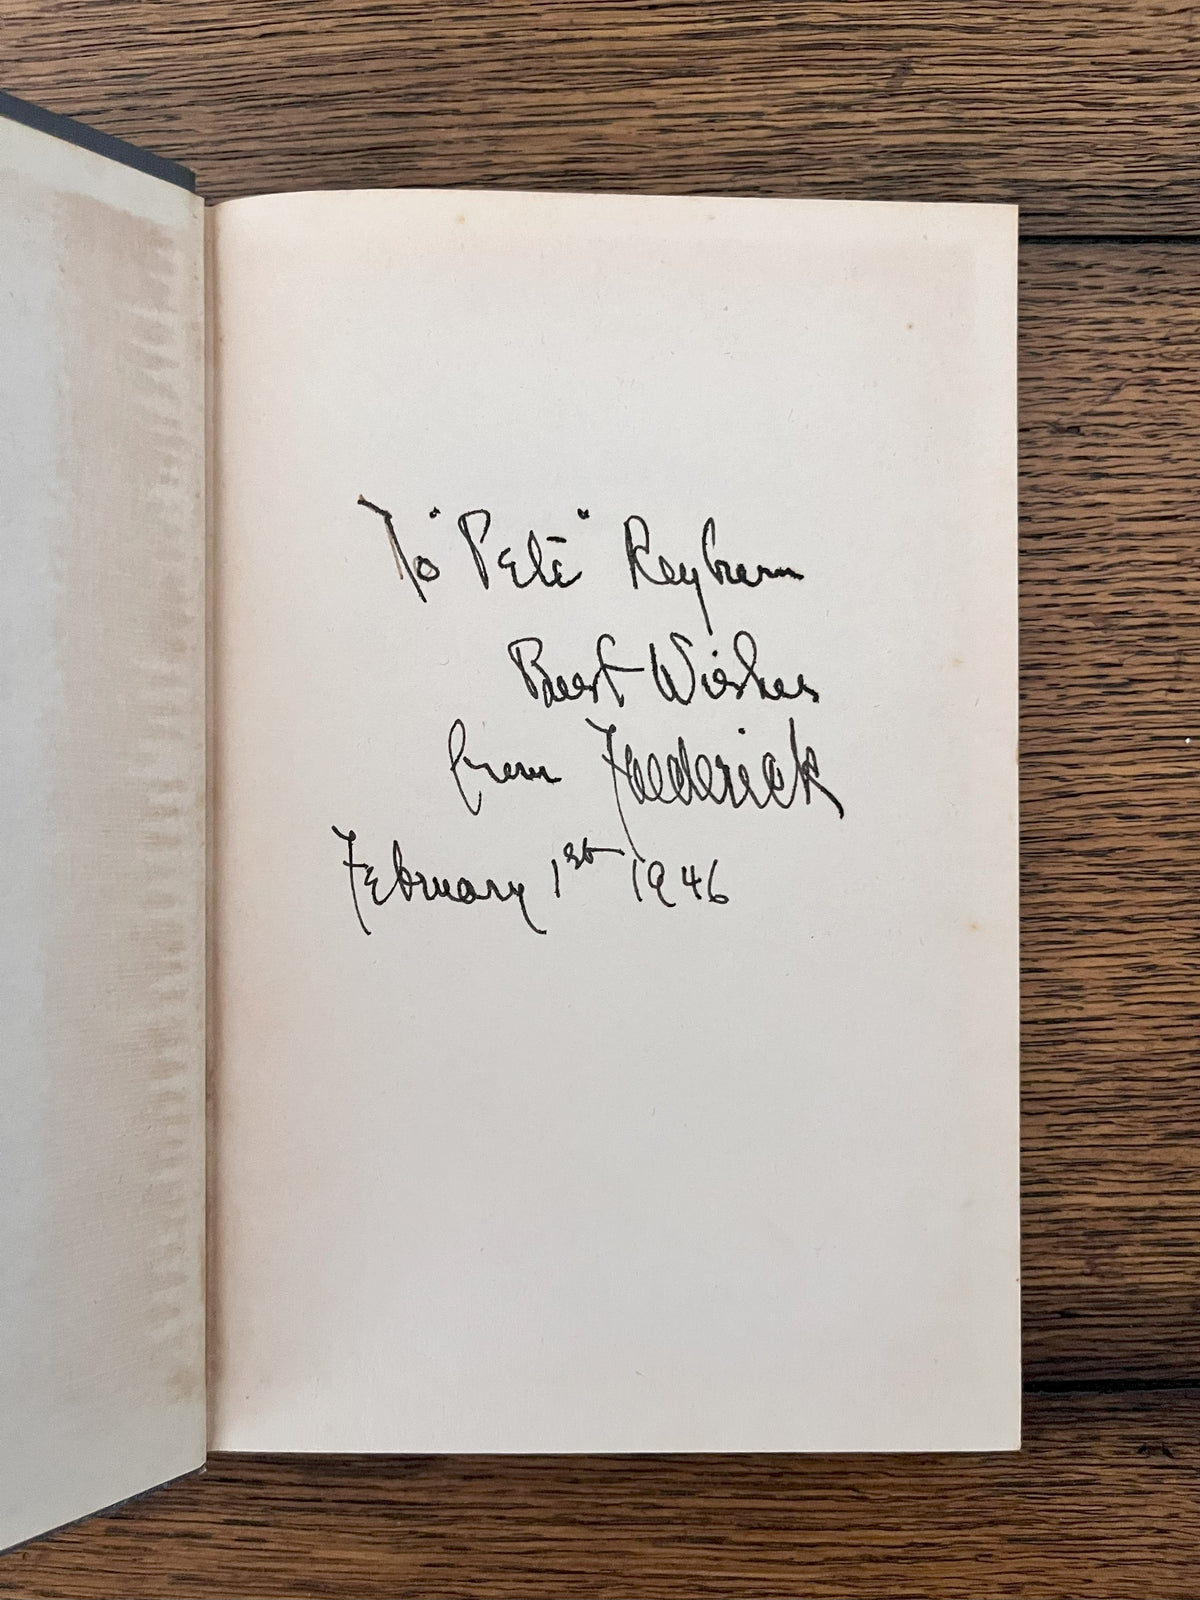 To "Pete" Reyburn
Best Wishes
from Frederick
February 1st 1946